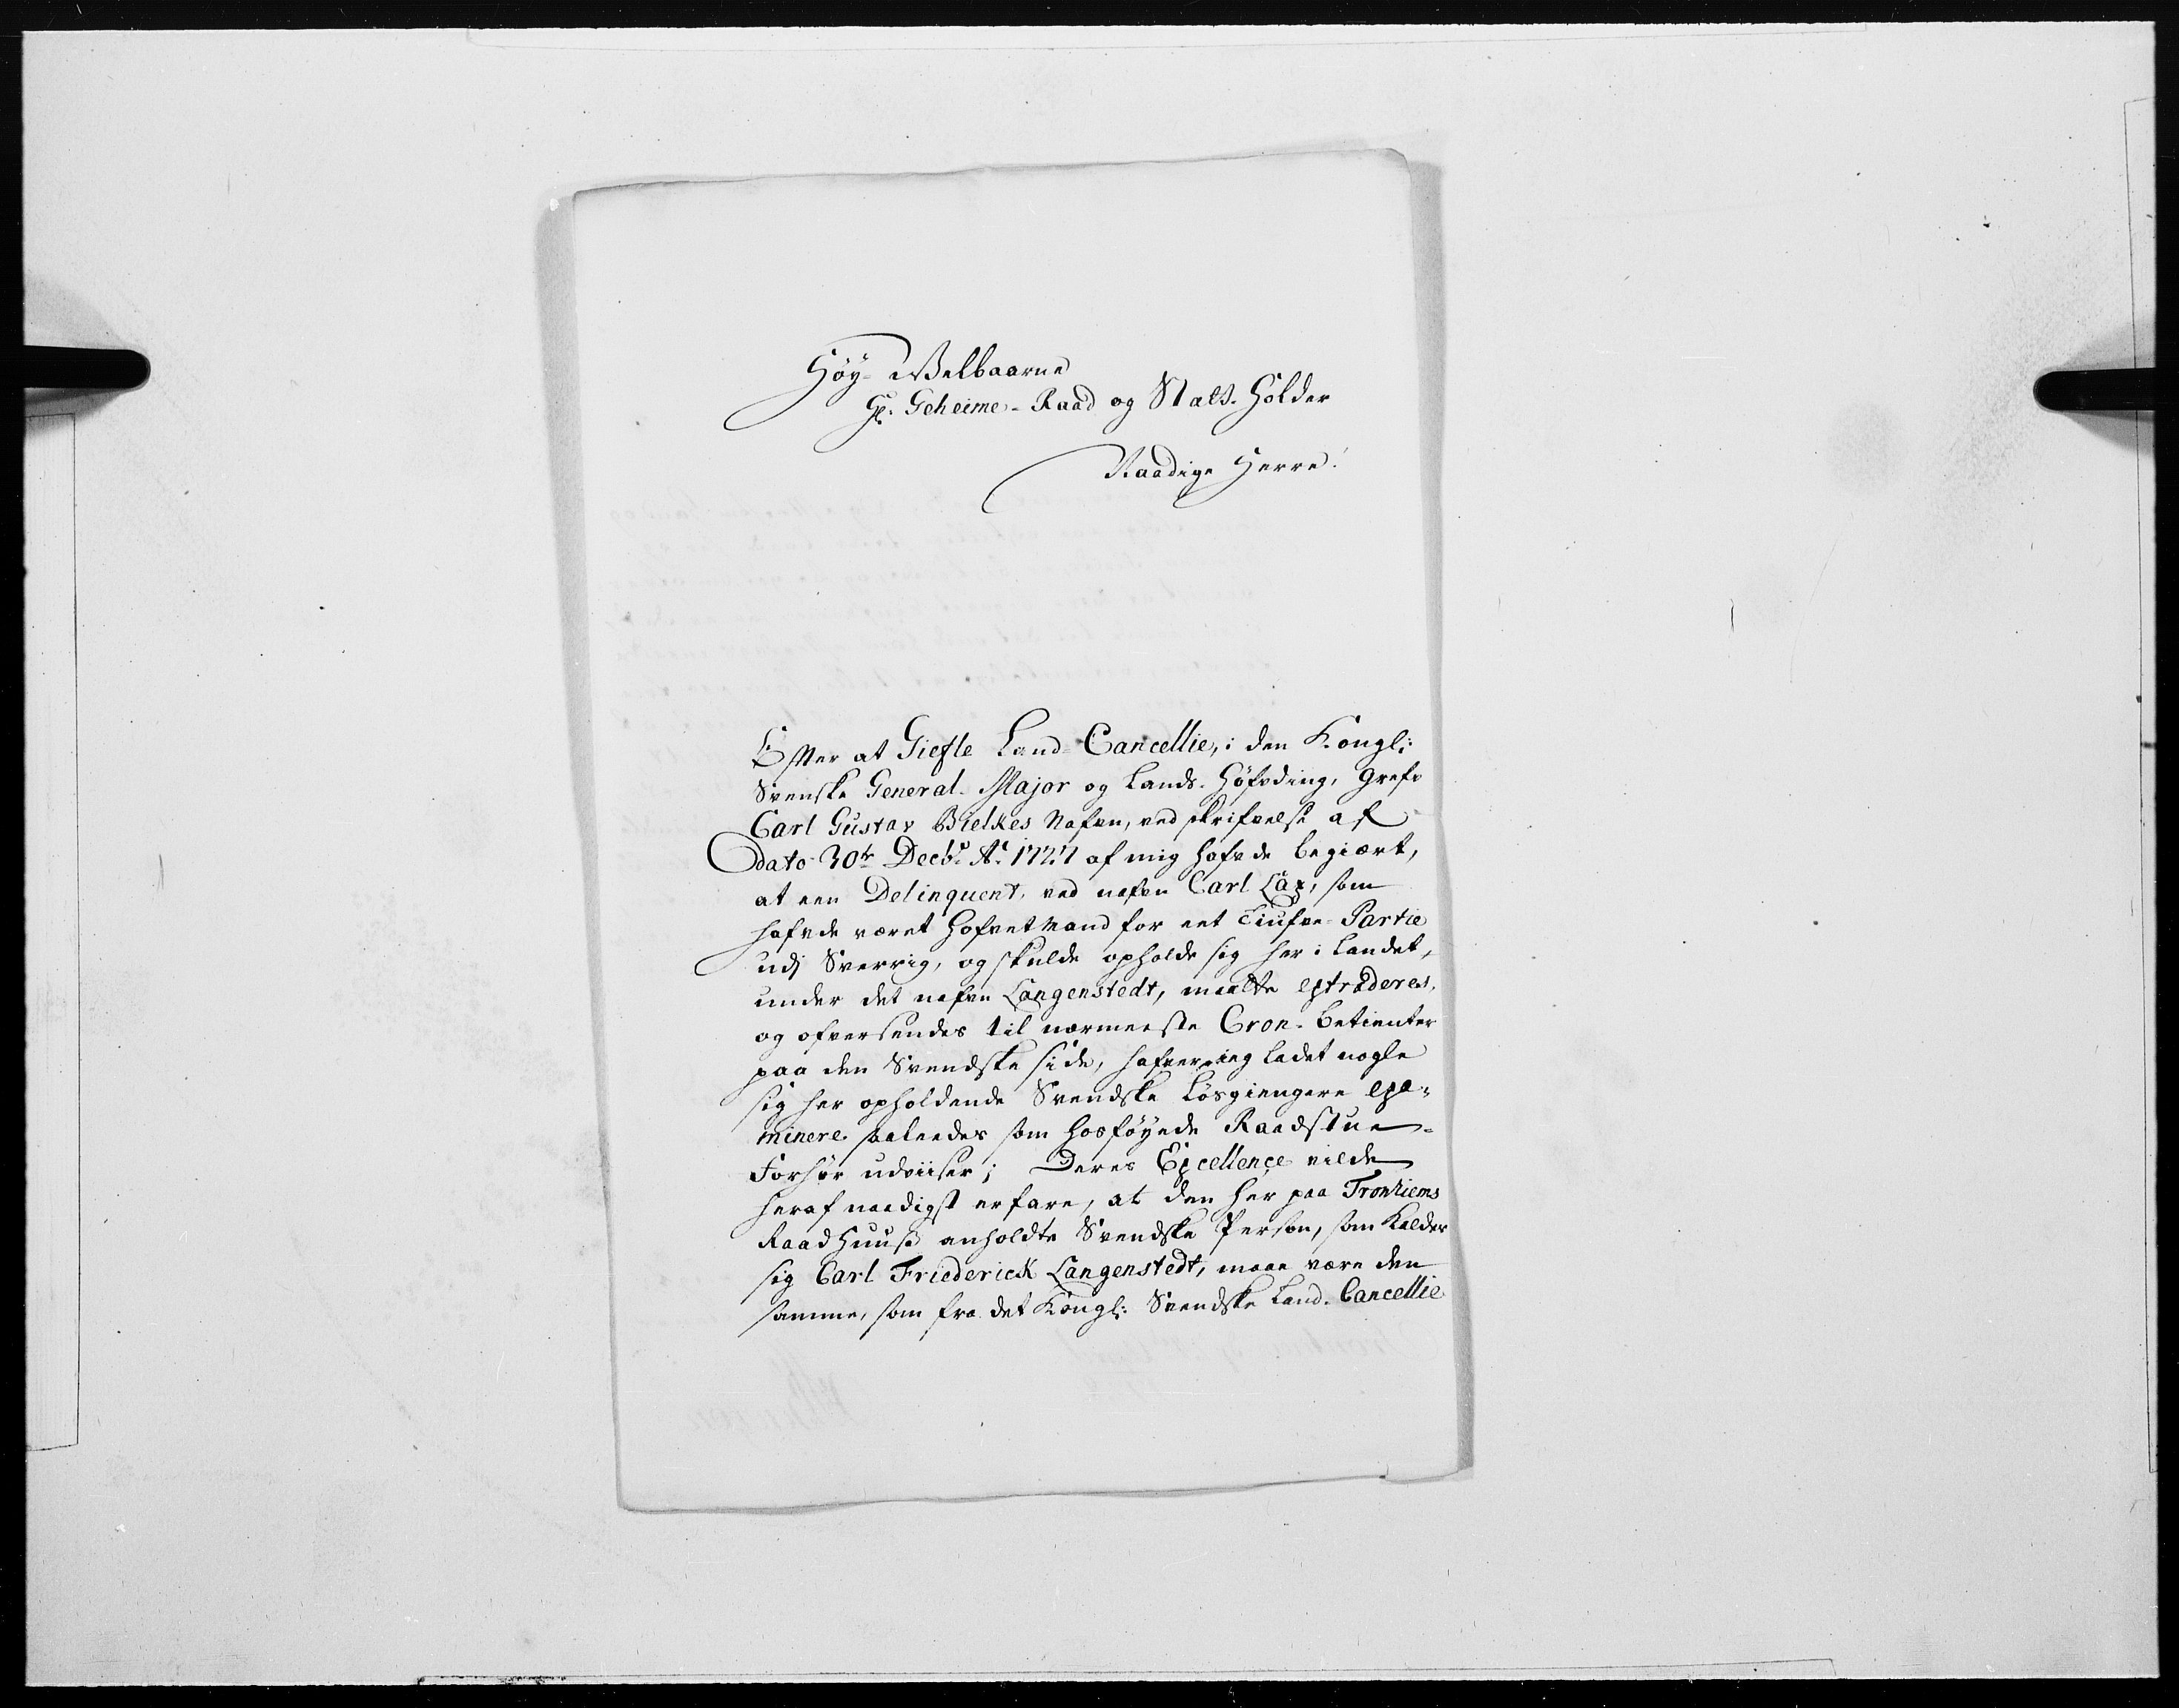 Høy-Welbaarne
Hr. Geheime-Raad og Stats-Holder
Naadige Herre!
Efter at Giefle Land-Cancellie, i den Kongl:
Svenske General-Major og Lands-Høfvding, Grefv
Carl Gustav Bielkes Nafvn, ved skrifvelse af
dato 30te Decbr Ao 1727 af mig hafvde begiært,
at een Delinquent, ved nafvn Carl Lax, som
hafvde været Hofvetmand for eet Tiufve-Partie
udj Sverrig, og skulde opholde sig her i Landet,
under det nafvn Langenstedt, maatte extraderes,
og ofversendes til nærmeeste Cron-betienter
paa den Svendske side, hafver ieg ladet nogle
sig her opholdende Svendske Løsgiengere exa-
minere saaleedes som hosføyede Raadstue-
Forhør udviiser; Deres Excellence vilde
heraf naadigst erfare, at den her paa Tronhiems
Raadhuuse anholdte Svendske Person, som kalder
sig Carl Friederick Langenstedt, maae være den
samme, som fra det Kongl: Svendske Land-Cancellie